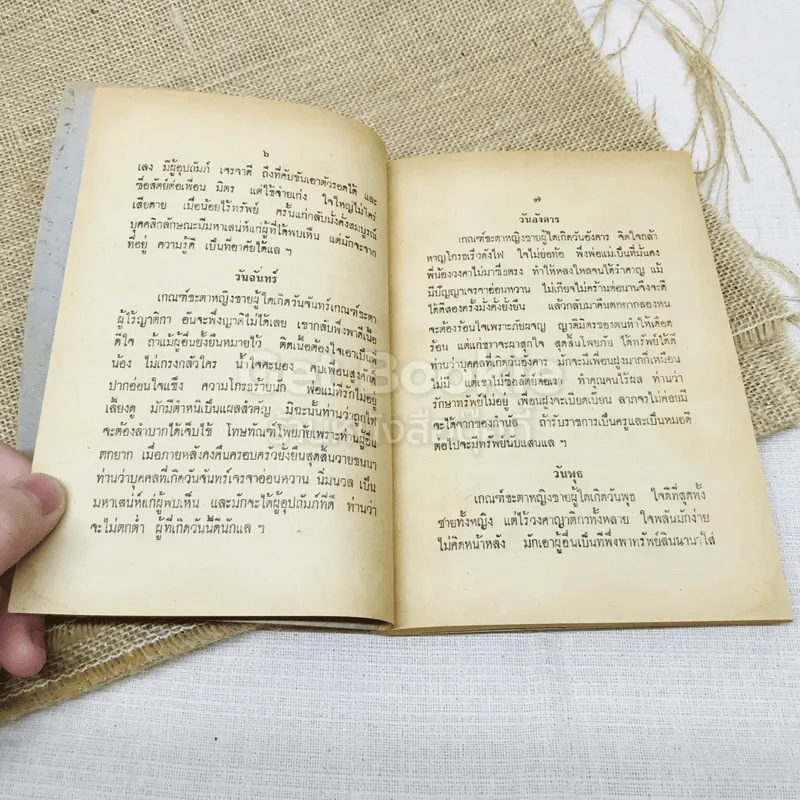 ๖
เลง มีผู้อุปถัมภ์ เจรจาดี ถึงที่คับขันเอาตัวรอดได้ และ
ซื่อสัตย์ต่อเพื่อน มิตร แต่ใช้จ่ายเก่ง ใจใหญ่ไม่ใคร่
เสียดาย เมื่อน้อยไร้ทรัพย์ ครั้นแก่กลับมั่งคั่งสมบูรณ์
บุคคลิกลักษณะมีมหาเสน่ห์แก่ผู้ที่ได้พบเห็น แต่มักจะจาก
ที่อยู่ ความรู้ดี เป็นที่อาศัยได้แล ฯ
วันจันทร์
เกณฑ์ชะตาหญิงชายผู้ใดเกิดวันจันทร์เกณฑ์ชะตา
ผู้ไร้ญาติกา อันจะพึ่งญาติไม่ได้เลย เขากลับพึ่งพาดีเนื้อ
ดีใจ ถ้าแม้ผู้อื่นยั่งยืนหมายไว้ ติดเนื้อต้องใจเอาเป็นพี่
น้อง ไม่เกรงกลัวใคร น้ำใจคะนอง คบเพื่อนสูงศักดิ์
ปากอ่อนใจแข็ง ความโกรธร้ายนัก พ่อแม่ที่รักไม่อยู่
เลี้ยงดู มักมีตำหนิเป็นแผลสำคัญ มิฉะนั้นท่านว่าถูกไฟ
จะต้องลำบากได้เจ็บไข้ โทษทัณฑ์โพยภัยเพราะท่านผู้อื่น
ตกยาก เมื่อภายหลังคงคืนครอบครัวยั่งยืนสุดสิ้นวายชนนา
ท่านว่าบุคคลที่เกิดวันจันทร์เจรจาอ่อนหวาน นิ่มนวล เป็น
มหาเสน่ห์แก่ผู้พบเห็น และมักจะได้ผู้อุปถัมภ์ที่ดี ท่านว่า
จะไม่ตกต่ำ ผู้ที่เกิดวันนี้ดีนักแล ฯ
๗
วันอังคาร
เกณฑ์ชะตาหญิงชายผู้ใดเกิดวันอังคาร จิตใจกล้า
หาญโกรธเร็วดังไฟ ใจไม่ย่อท้อ พึ่งพ่อแม่เป็นที่มั่นคง
พี่น้องวงศาไม่มาซื่อตรง ทำให้หลงใหลจนได้รำคาญ แม้
มีปัญญาเจรจาอ่อนหวาน ไม่เกียจไม่คร้านต่อนานจึงจะดี
ได้ดีสองครั้งมั่งคั่งยั่งยืน แล้วกลับมาคืนตกยากสองหน
จะต้องร้อนใจเพราะภัยผจญ ญาติมิตรของตนทำให้เดือด
ร้อน แต่แก่ชราจะผาสุกใจ สุดสิ้นโพยภัย ได้ทรัพย์ได้ดี
ท่านว่าบุคคลที่เกิดวันอังคาร มักจะมีเพื่อนฝูงมากก็เหมือน
ไม่มี แต่เขาไม่ซื่อสัตย์ต่อเรา ทำคุณคนไร้ผล ท่านว่า
รักษาทรัพย์ไม่อยู่ เพื่อนฝูงจะเบียดเบียน ลาภจรไม่ค่อยมี
จะได้จากของกำนัล ถ้ารับราชการเป็นครูและเป็นหมอดี
ต่อไปจะมีทรัพย์นับแสนแล ฯ
วันพุธ
เกณฑ์ชะตาหญิงชายผู้ใดเกิดวันพุธ ใจดีที่สุดทั้ง
ชายทั้งหญิง แต่ไร้วงศาญาติกาทั้งหลาย ใจพลันมักง่าย
ไม่คิดหน้าหลัง มักเอาผู้อื่นเป็นที่พึ่งพาทรัพย์สินนานาใส่